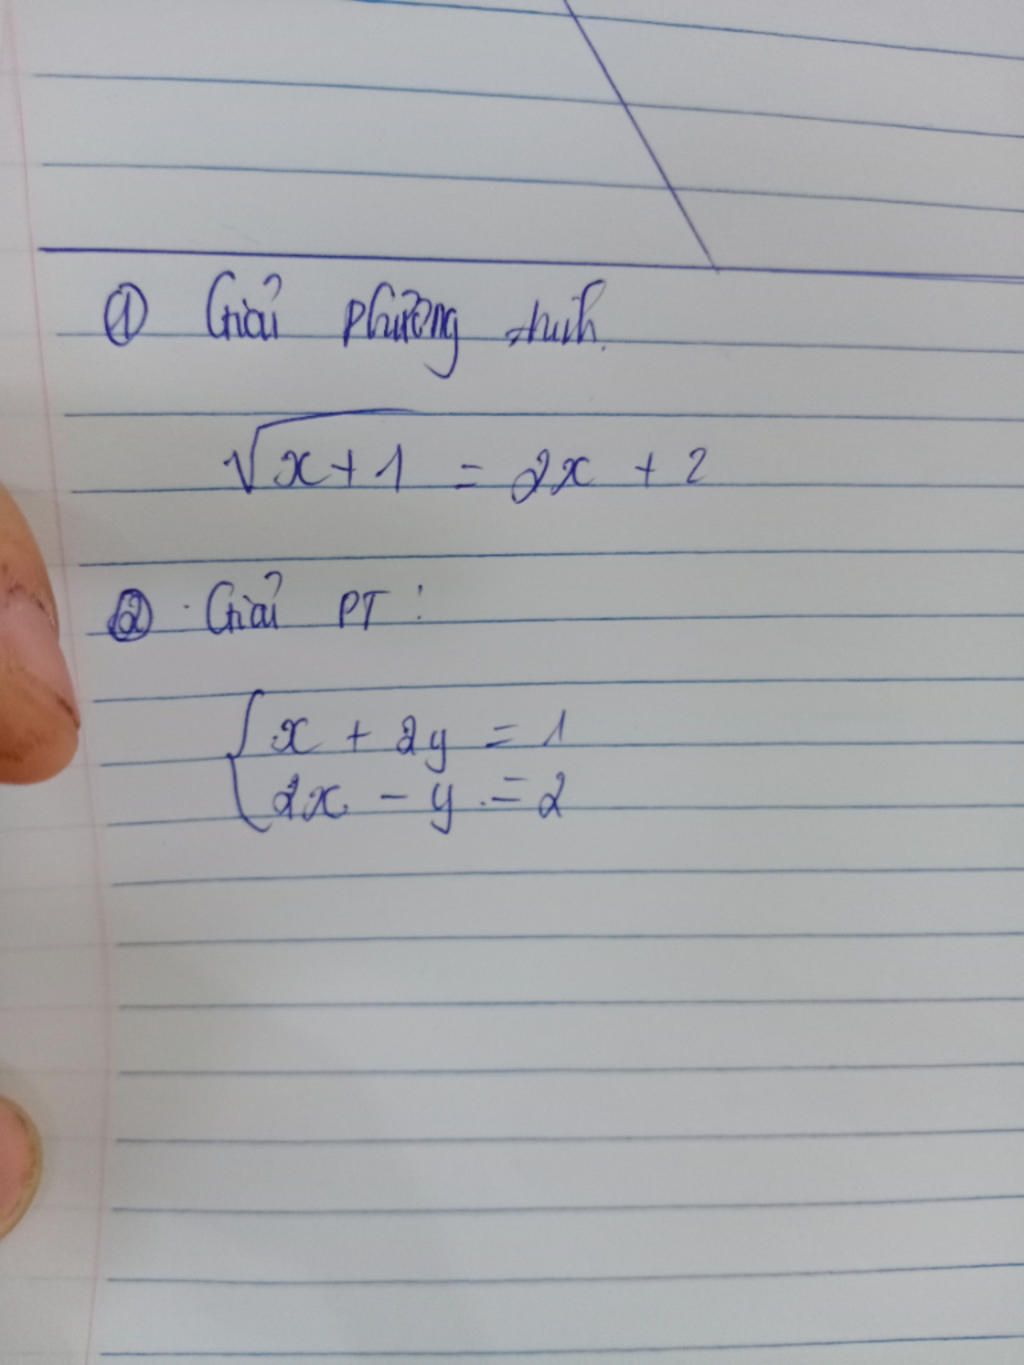 ① Giải phương trình.
√x+1 = 2x + 2
② Giải PT :
{ x + 2y = 1
2x - y = 2